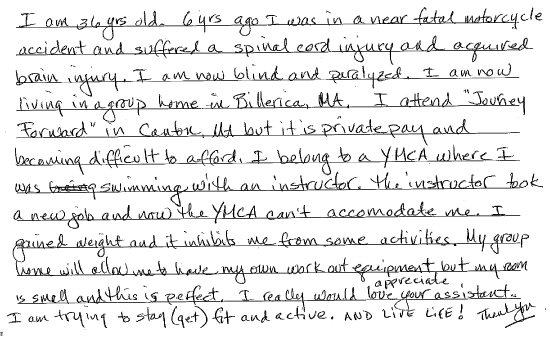 I am 36 yrs old. 6 yrs ago I was in a near fatal motorcycle
accident and suffered a spinal cord injury and acquired
brain injury. I am now blind and paralyzed. I am now
living in a group home in Billerica, MA. I attend "Journey
Forward" in Canton, MA but it is private pay and
becoming difficult to afford. I belong to a YMCA where I
was swimming with an instructor. The instructor took
a new job and now the YMCA can't accomodate me. I
gained weight and it inhibits me from some activities. My group
home will allow me to have my own work out equipment but my room
is small and this is perfect. I really would love your assistant.
appreciate
I am trying to stay (get) fit and active. AND LIVE LIFE! Thank you